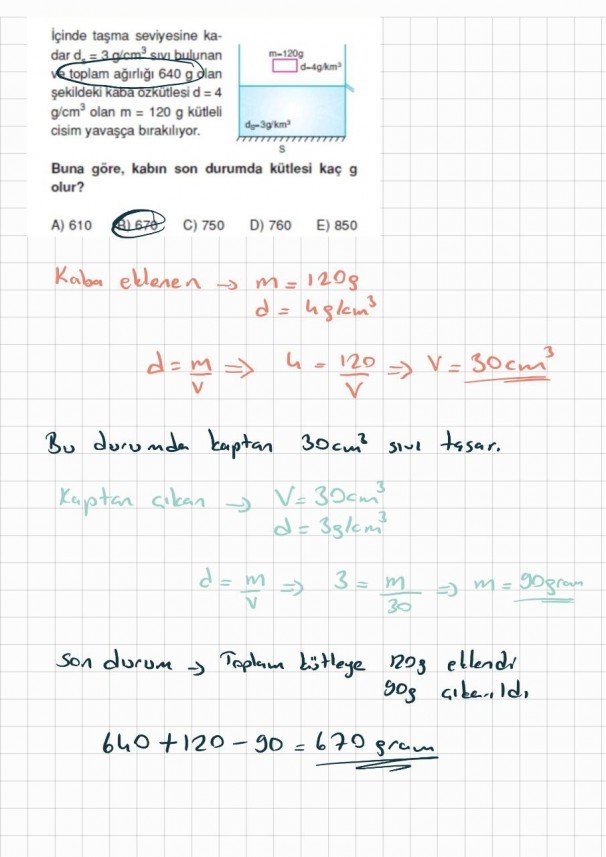 İçinde taşma seviyesine ka-
dar dₛ = 3 g/cm³ sıvı bulunan
ve toplam ağırlığı 640 g olan
şekildeki kaba özkütlesi d = 4
g/cm³ olan m = 120 g kütleli
cisim yavaşça bırakılıyor.
m=120g
d=4g/km³
dₛ=3g/km³
S
Buna göre, kabın son durumda kütlesi kaç g
olur?
A) 610 B) 670 C) 750 D) 760 E) 850
Kaba eklenen → m = 120g
d = 4g/cm³
d = m/V ⇒ 4 = 120/V ⇒ V = 30cm³
Bu durumda kaptan 30cm² sıvı taşar.
Kaptan çıkan → V = 30cm³
d = 3g/cm³
d = m/V ⇒ 3 = m/30 ⇒ m = 90gram
Son durum → Toplam kütleye 120g eklendi
90g çıkarıldı
640 + 120 - 90 = 670 gram